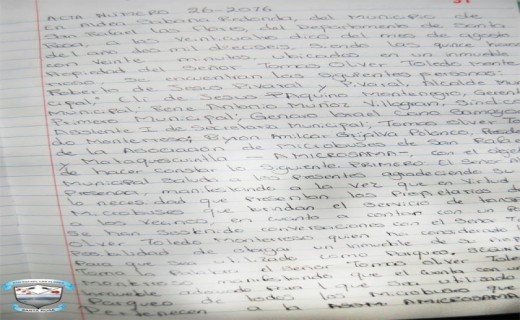 ACTA NUMERO 26-2016
En Aldea Sabana Redonda, del Municipio de
San Rafael las Flores, del Departamento de Santa
Rosa, a los veinticinco dias del mes de agosto
del año dos mil dieciseis, siendo las quince horas
con veinte minutos, ubicados en un inmueble
Propiedad del Señor Tomas Oliver Toledo Monte
rroso, se encuentran las siguientes personas
Roberto de Jesus Pivaral y Pivaral, Alcalde Muni
cipal; Eli de Jesus Aquino Montenegro, Gerente
Municipal; Rene Antonio Muñoz Villagran, Sindico
Primero Municipal; Genaro Ismael Cano
Asistente I de Secretaria Municipal; Tomas Oliver Tole
do Monterroso; Byron Amilcar Grijalva Polanco,
de la Asociación de Microbuses de San Rafael
y Mataquescuintla - AMICROSAMA- con el objeto
de hacer constar lo siguiente: PRIMERO: El Señor
Municipal Saluda a los presentes agradeciendo su
Presencia manifestando a la vez que en virtud
la necesidad que presentan los propietarios de
Microbuses que brindan el servicio de
a los vecinos en cuanto a contar con un
se han sostenido conversaciones con el Señor
Oliver Toledo Monterroso quien ha considerado la
Posibilidad de hogar un inmueble de su
Para que sea utilizado como Parqueo. SEGUNDO
Toma la Palabra el Señor Tomas Oliver Toledo
Monterroso manifestando que el cuenta con un
inmueble adecuado para que sea utilizado
Parqueo de todos los Microbuses que
Pertenecen a la ASOM. AMICROSAMA